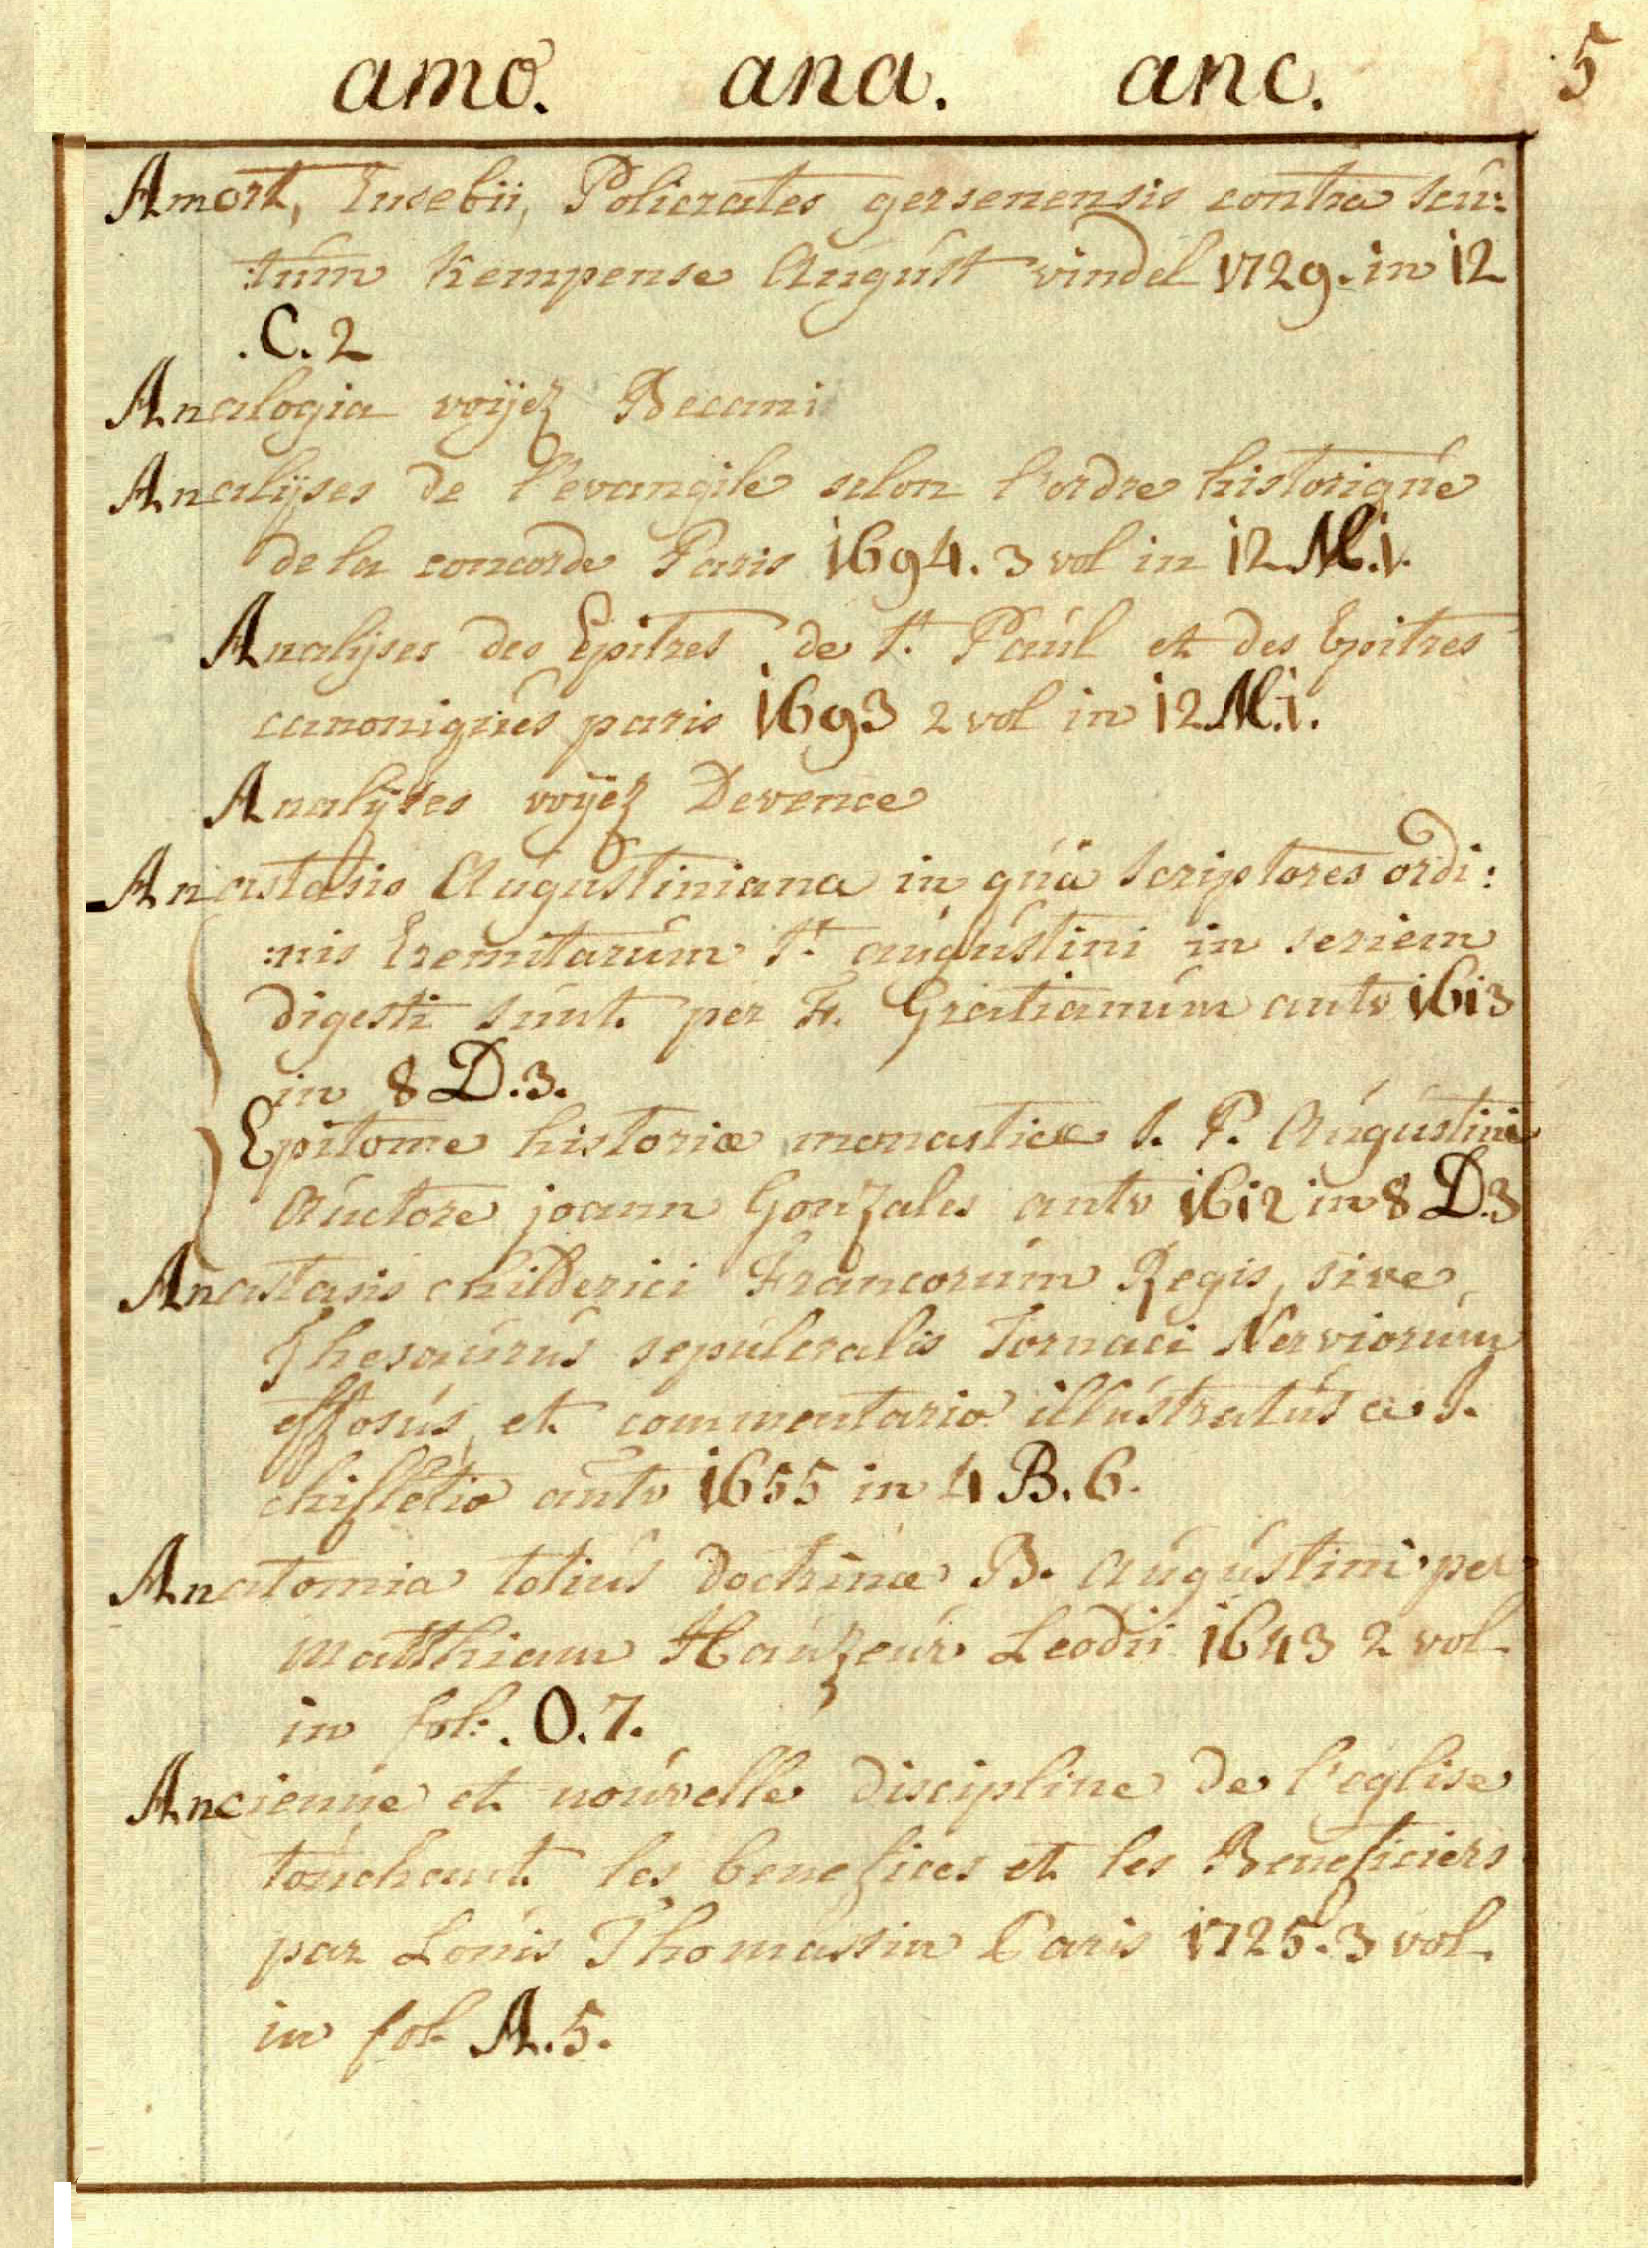 amo. ana. anc. 5
Amort, Eusebii, Policrates gersenensis contra scu:
:tum Kempense August vindel 1729. in 12
.C.2
Analogia voÿez Becani
Analÿses de l'evangile selon l'ordre historique
de la concorde Paris 1694. 3 vol in 12 M.1.
Analÿses des Epitres de St. Paul et des Epitres
canoniques paris 1693 2 vol in 12 M.1.
Analÿses voÿez Devence
Anastasis Augustiniana in qua scriptores ordi:
:nis Eremitarum St. augustini in seriem
digesti sunt per F. Gratianum antv 1613
in 8 D.3.
Epitome historiæ monasticæ S. P. Augustini
Auctore joann Gonzales antv 1612 in 8 D.3
Anastasis childerici Francorum Regis, sive,
Thesaurus sepulcralis Tornaci Nerviorum
effosus, et commentario illustratus a J.
chifletio antv 1655 in 4 B.6.
Anatomia totius Doctrinæ B. Augustini per
Matthiam Hauzeur Leodii 1643 2 vol
in fol: .O.7.
Ancienne et nouvelle Discipline de l'eglise
touchant les benefices et les Beneficiers
par Louis Thomassin Paris 1725. 3 vol.
in fol A.5.